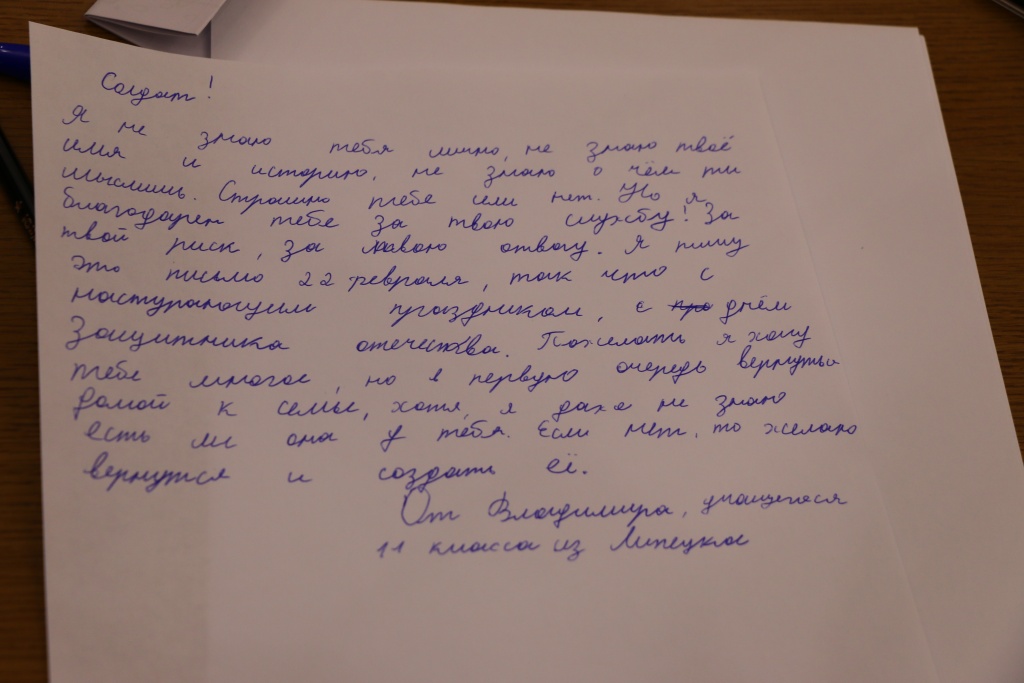 Солдат!
Я не знаю тебя лично, не знаю твоё
имя и историю, не знаю о чём ты
мыслишь. Страшно тебе или нет. Но я
благодарен тебе за твою службу! За
твой риск, за твою отвагу. Я пишу
это письмо 22 февраля, так что с
наступающим праздником, с днём
Защитника отечества. Пожелать я хочу
тебе многое, но в первую очередь вернуться
домой к семье, хотя, я даже не знаю
есть ли она у тебя. Если нет, то желаю
вернутся и создать её.
От Владимира, учащегося
11 класса из Липецка